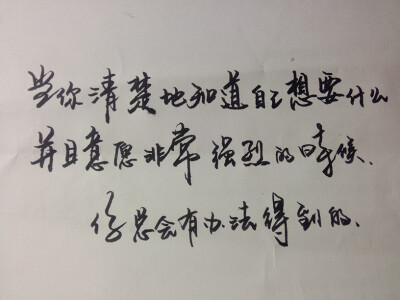 当你清楚地知道自己想要什么
并且意愿非常强烈的时候、
你总会有办法得到的、